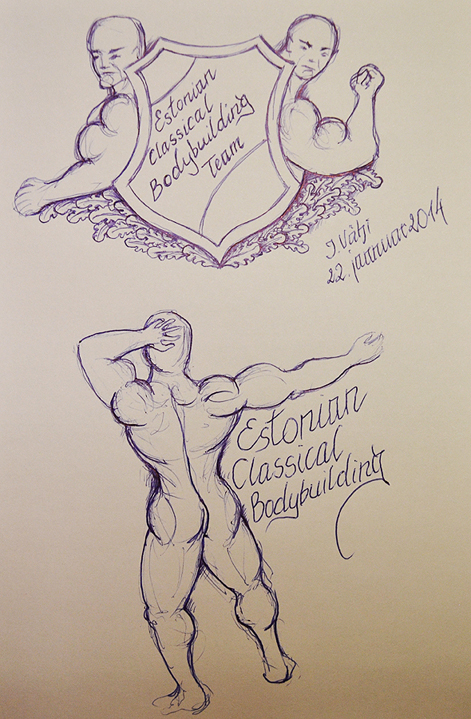 Estonian
Classical
Bodybuilding
Team
22. jaanuar 2014
Estonian
Classical
Bodybuilding